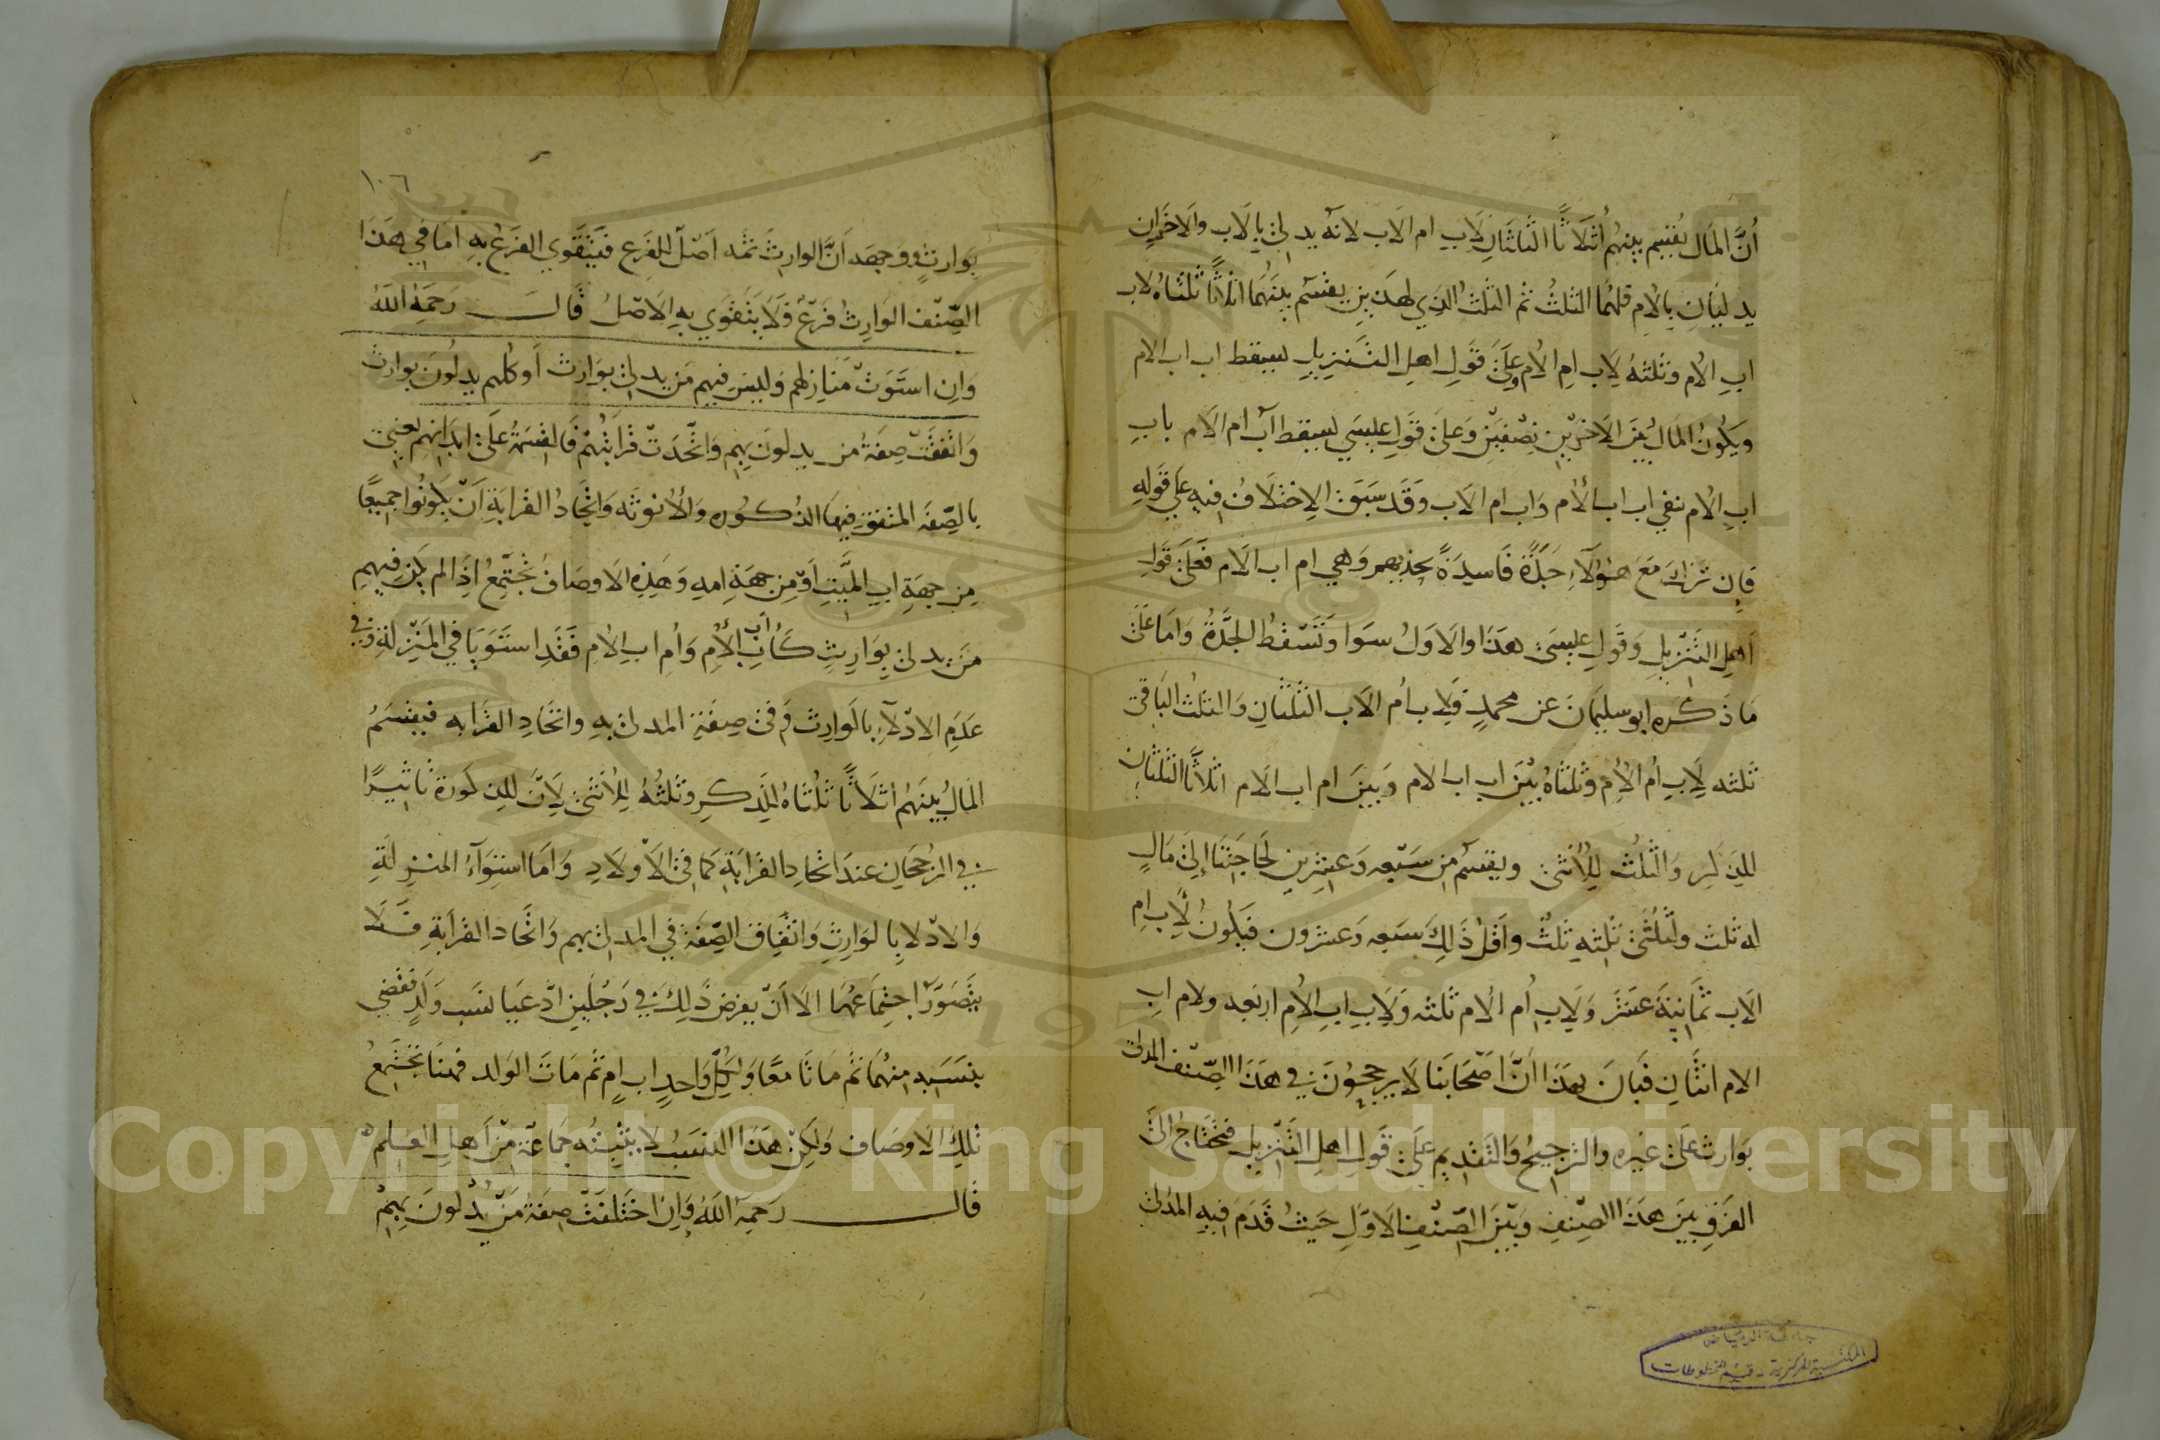 أنّ المال يقسم بينهم أثلاثًا الثلثان لاب ام الاب لانه يدلي بالاب والاخران
يدليان بالام فلهما الثلث ثم الثلث الذي لهذين يقسم بينهما اثلاثًا ثلثاه لاب
اب الام وثلثه لاب ام الام وعلى قول اهل التنزيل يسقط اب اب الام
ويكون المال بين الاخرين نصفين وعلى قول عيسى يسقط اب ام الام باب
اب الام بقي اب اب الام واب ام الاب وقد سبق الاختلاف فيه على قوله
فان ترك مع هؤلاء جدّة فاسدة بحذيهم وهي ام اب الام فعلى قول
اهل التنزيل وقول عيسى هذا والاول سوا وتسقط الجدّة واما على
ما ذكره ابو سليمان عن محمد فلاب ام الاب الثلثان والثلث الباقي
ثلثه لاب ام الام وثلثاه بين اب اب الام وبين ام اب الام اثلاثا الثلثان
للذكر والثلث للأنثى ويقسم من سبعه وعشرين لحاجتنا إلى مال
له ثلث ولثلثي ثلثه ثلث واقل ذلك سبعه وعشرون فيكون لأب ام
الاب ثمانية عشر ولاب أم الام ثلثه ولاب اب الام اربعه ولام اب
الام اثنان فبان بهذا انّ اصحابنا لا يرجحون في هذا الصّنف المدلى
بوارث على غيره والترجيح والتقديم على قول اهل التنزيل فنحتاج الى
الفرق بين هذا الصنف وبين الصّنف الاوّل حيث قدم فيه المدلى
١٠٦
بوارث ووجهه أنّ الوارث ثمه اصل للفرع فيتقوي الفرع به اما في هذا
الصّنف الوارث فرع فلا يتقوي به الاصل قال رحمه الله
وان استوت منازلهم وليس فيهم من يدلى بوارث أو كلهم يدلون بوارث
واتفقت صفة من يدلون بهم واتّحدت قرابتهم فالقسمة على ابدانهم يعني
بالصفه المتفق فيها الذكوره والأنوثه واتحاد القرابة أن يكونوا جميعًا
من جهة اب الميّت أو من جهة امه وهذه الاوصاف تجتمع اذا لم يكن فيهم
من يدلى بوارث كأب اب الأم وام اب الام فقد استويا في المنزلة وفي
عدم الادلاء بالوارث وفي صفة المدلى به واتحاد القرابه فيقسم
المال بينهم اثلاثًا ثلثاه للذكر وثلثه للأنثى لانّ للذكورة تاثيرًا
في الرجحان عند اتحاد القرابة كما في الاولاد واما استوآء المنزلة
والادلا بالوارث واتفاق الصّفة في المدلى بهم واتّحاد القرابة فلا
يتصوّر اجتماعهما الا أنّ يفرض ذلك في رجلين ادّعيا نسب ولد فقضي
بنسبه منهما ثم ماتا معًا ولكلّ واحد اب ام ثم مات الولد فهنا تجتمع
تلك الاوصاف ولكن هذا النسب لا يثبته جماعة من أهل العلم
قال رحمه الله وان اختلفت صفة من يدلون بهم
جامعة الرياض
المكتبة المركزية - قسم المخطوطات
Copyright © King Saud University
1957